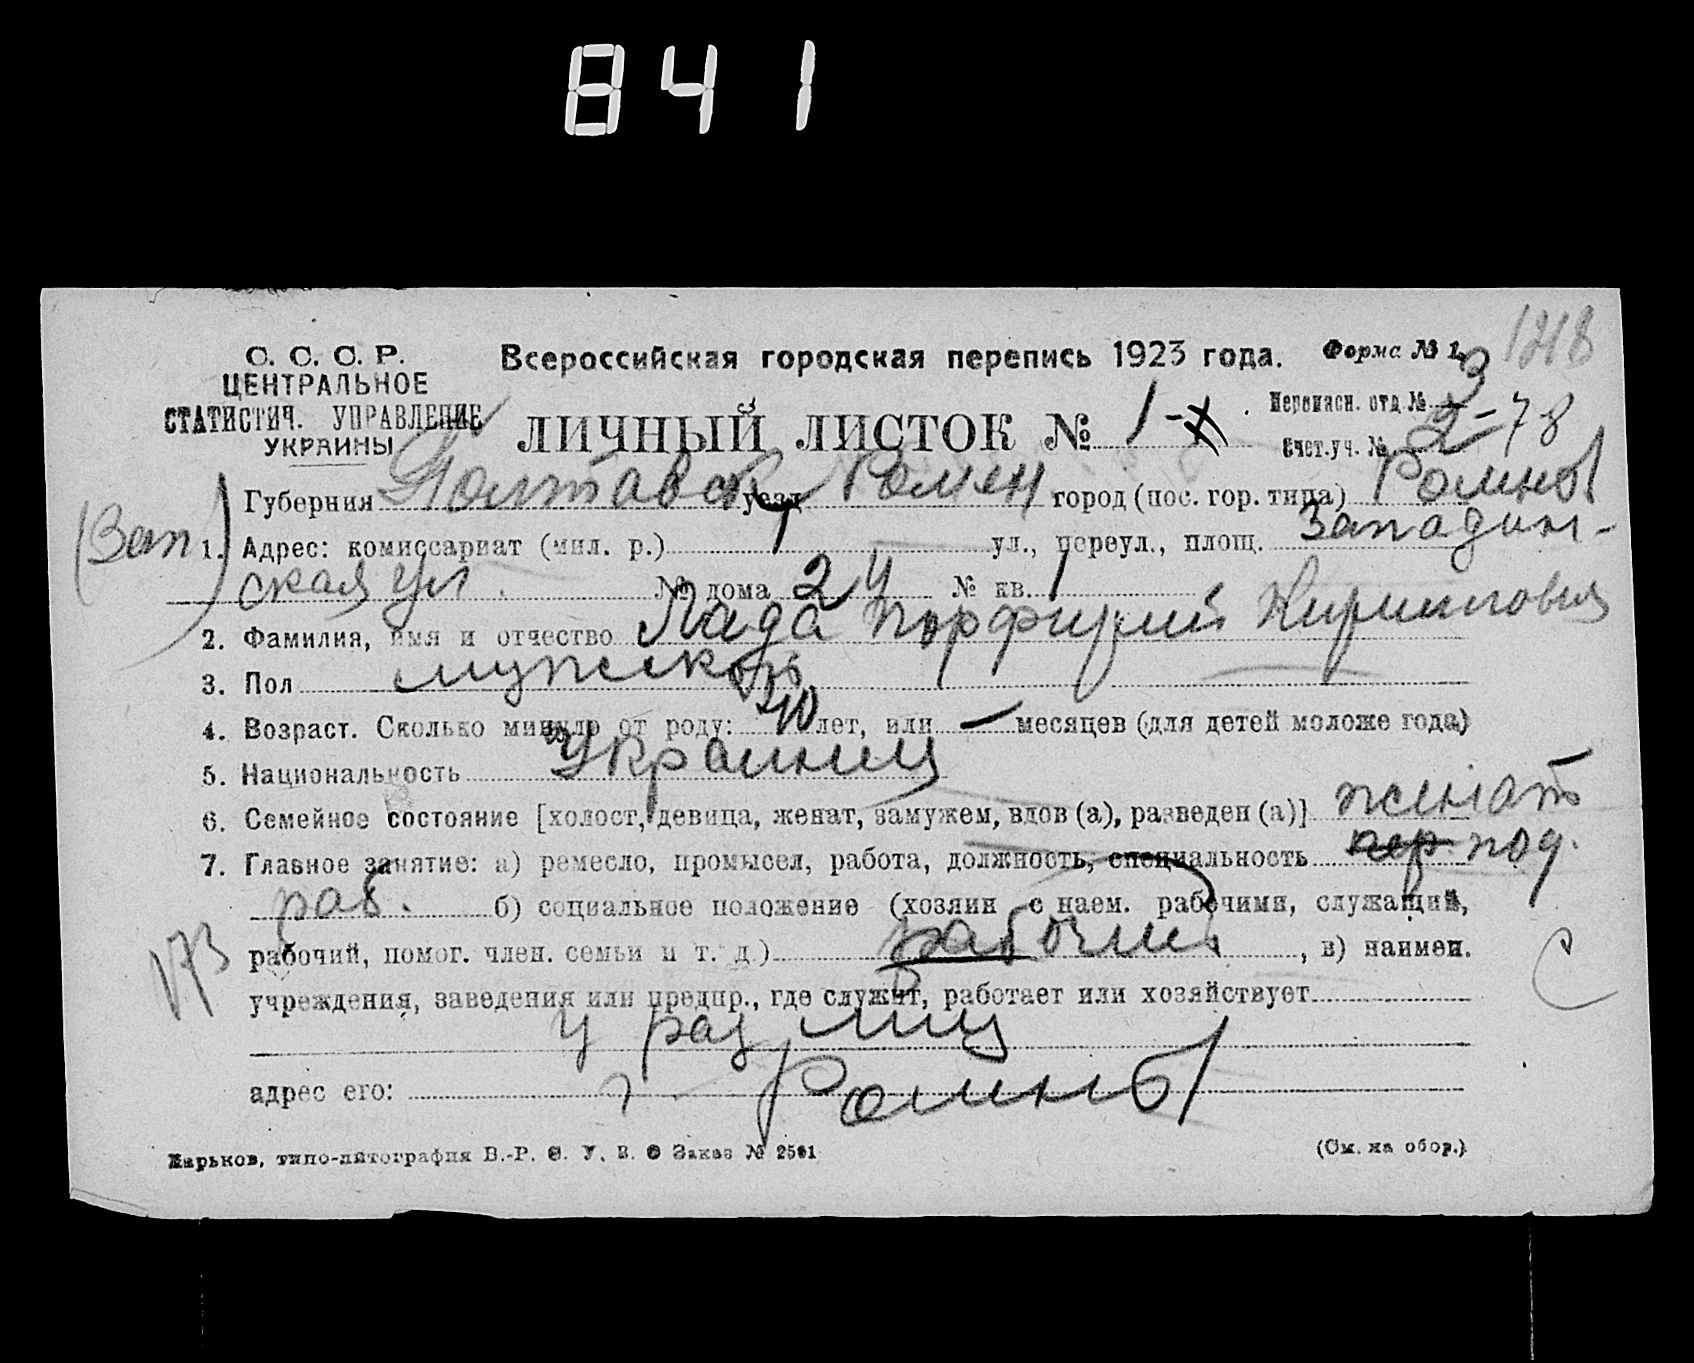 841
1218
С. С. С. Р.
ЦЕНТРАЛЬНОЕ
СТАТИСТИЧ. УПРАВЛЕНИЕ
УКРАИНЫ
Всероссийская городская перепись 1923 года. Форма № 1.
ЛИЧНЫЙ ЛИСТОК № 1- Переписн. отд № 3
Счет.уч. № 2-78
Губерния Полтавск уезд Ромен город (пос. гор. типа) Ромны
(Зап) 1. Адрес: комиссариат (мил. р.) ул., переул., площ. Западин-
ская ул. № дома 24 № кв. 1
2. Фамилия, имя и отчество Лада Порфирий
3. Пол мужской
4. Возраст. Сколько минуло от роду: 40 лет, или — месяцев (для детей моложе года)
5. Национальность Украинец
6. Семейное состояние [холост, девица, женат, замужем, вдов (а), разведен (а)] женат
7. Главное занятие: а) ремесло, промысел, работа, должность, специальность чер под.
раб. б) социальное положение (хозяин с наем. рабочими, служащий,
рабочий, помог. член. семьи и т. д.) рабочий, в) наимен.
173
С
учреждения, заведения или предпр., где служит, работает или хозяйствует
у раз лиц
адрес его: г. Ромны
Харьков, типо-литография В.-Р. С. У. В. О Заказ № 2591 (См. на обор.)